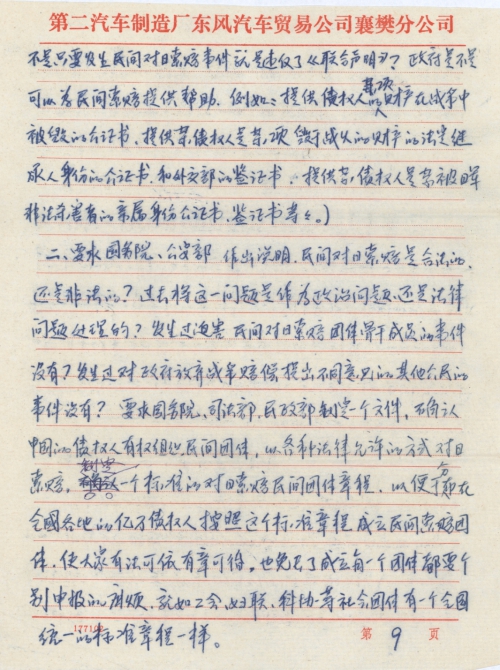 第二汽车制造厂东风汽车贸易公司襄樊分公司
不是只要发生民间对日索赔事件就是违反了《联合声明》？政府是不是
可以为民间索赔提供帮助.例如：提供债权人的某项财产在战争中
被毁的公证书、提供某债权人是某项毁于战火的财产的法定继
承人身份的公证书.和外交部的鉴证书、提供某债权人是某被日军
非法杀害者的亲属身份公证书、鉴证书等々。）
二、要求国务院、公安部作出说明.民间对日索赔是合法的、
还是非法的？过去将这一问题是作为政治问题、还是法律
问题处理的？发生过迫害民间对日索赔团体骨干成员的事件
没有？发生过对政府放弃战争赔偿提出不同意见的其他公民的
事件没有？要求国务院、司法部、民政部制定一个文件，确认
中国的债权人有权组织民间团体，以各种法律允许的方式对日
索赔.制定一个标准的对日索赔民间团体章程.以便于分布在
全国各地的亿万债权人按照这个标准章程成立民间索赔团
体.使大家有法可依有章可循，也免去了成立每一个团体都要个
别申报的麻烦.就如工会、妇联、科协等社会团体有一个全国
统一的标准章程一样。
第 9 页